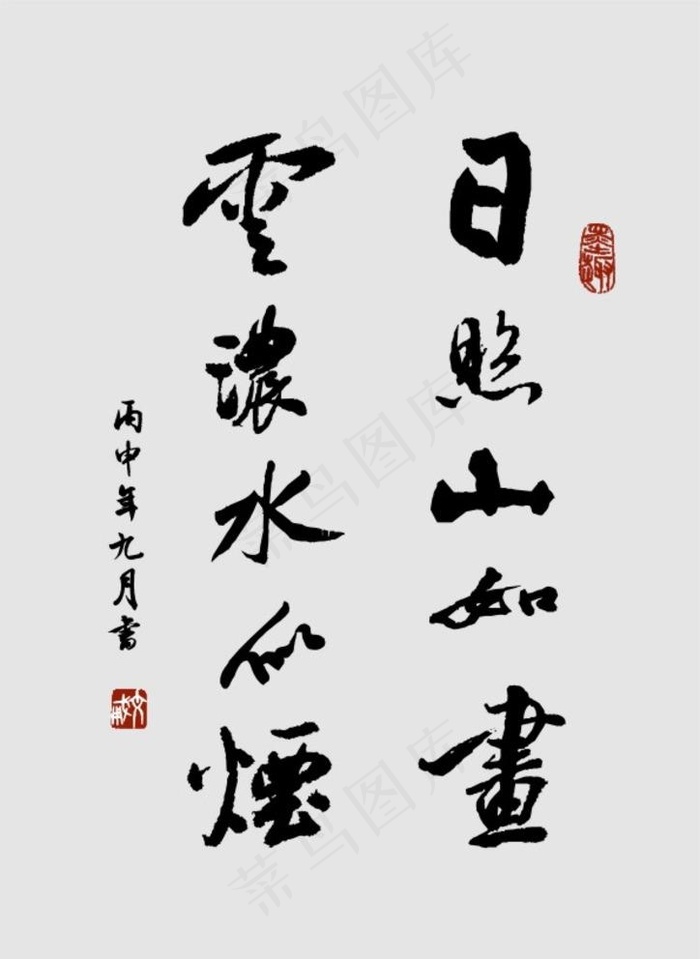 日照山如畫
雲濃水似煙
丙申年九月書
菜鸟图库
菜鸟图库
菜鸟图库